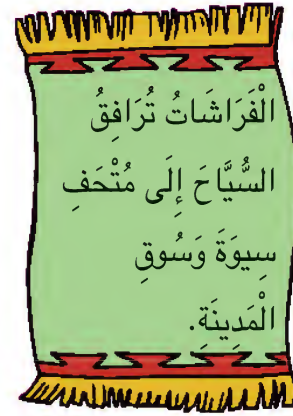 الْفَرَاشَاتُ تُرَافِقُ
السُّيَّاحَ إِلَى مُتْحَفِ
سِيوَةَ وَسُوقِ
الْمَدِينَةِ.